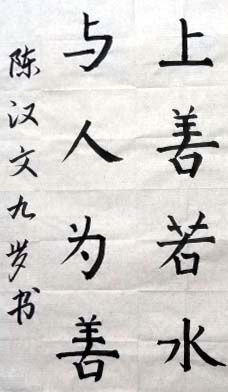 上善若水
与人为善
陈汉文九岁书